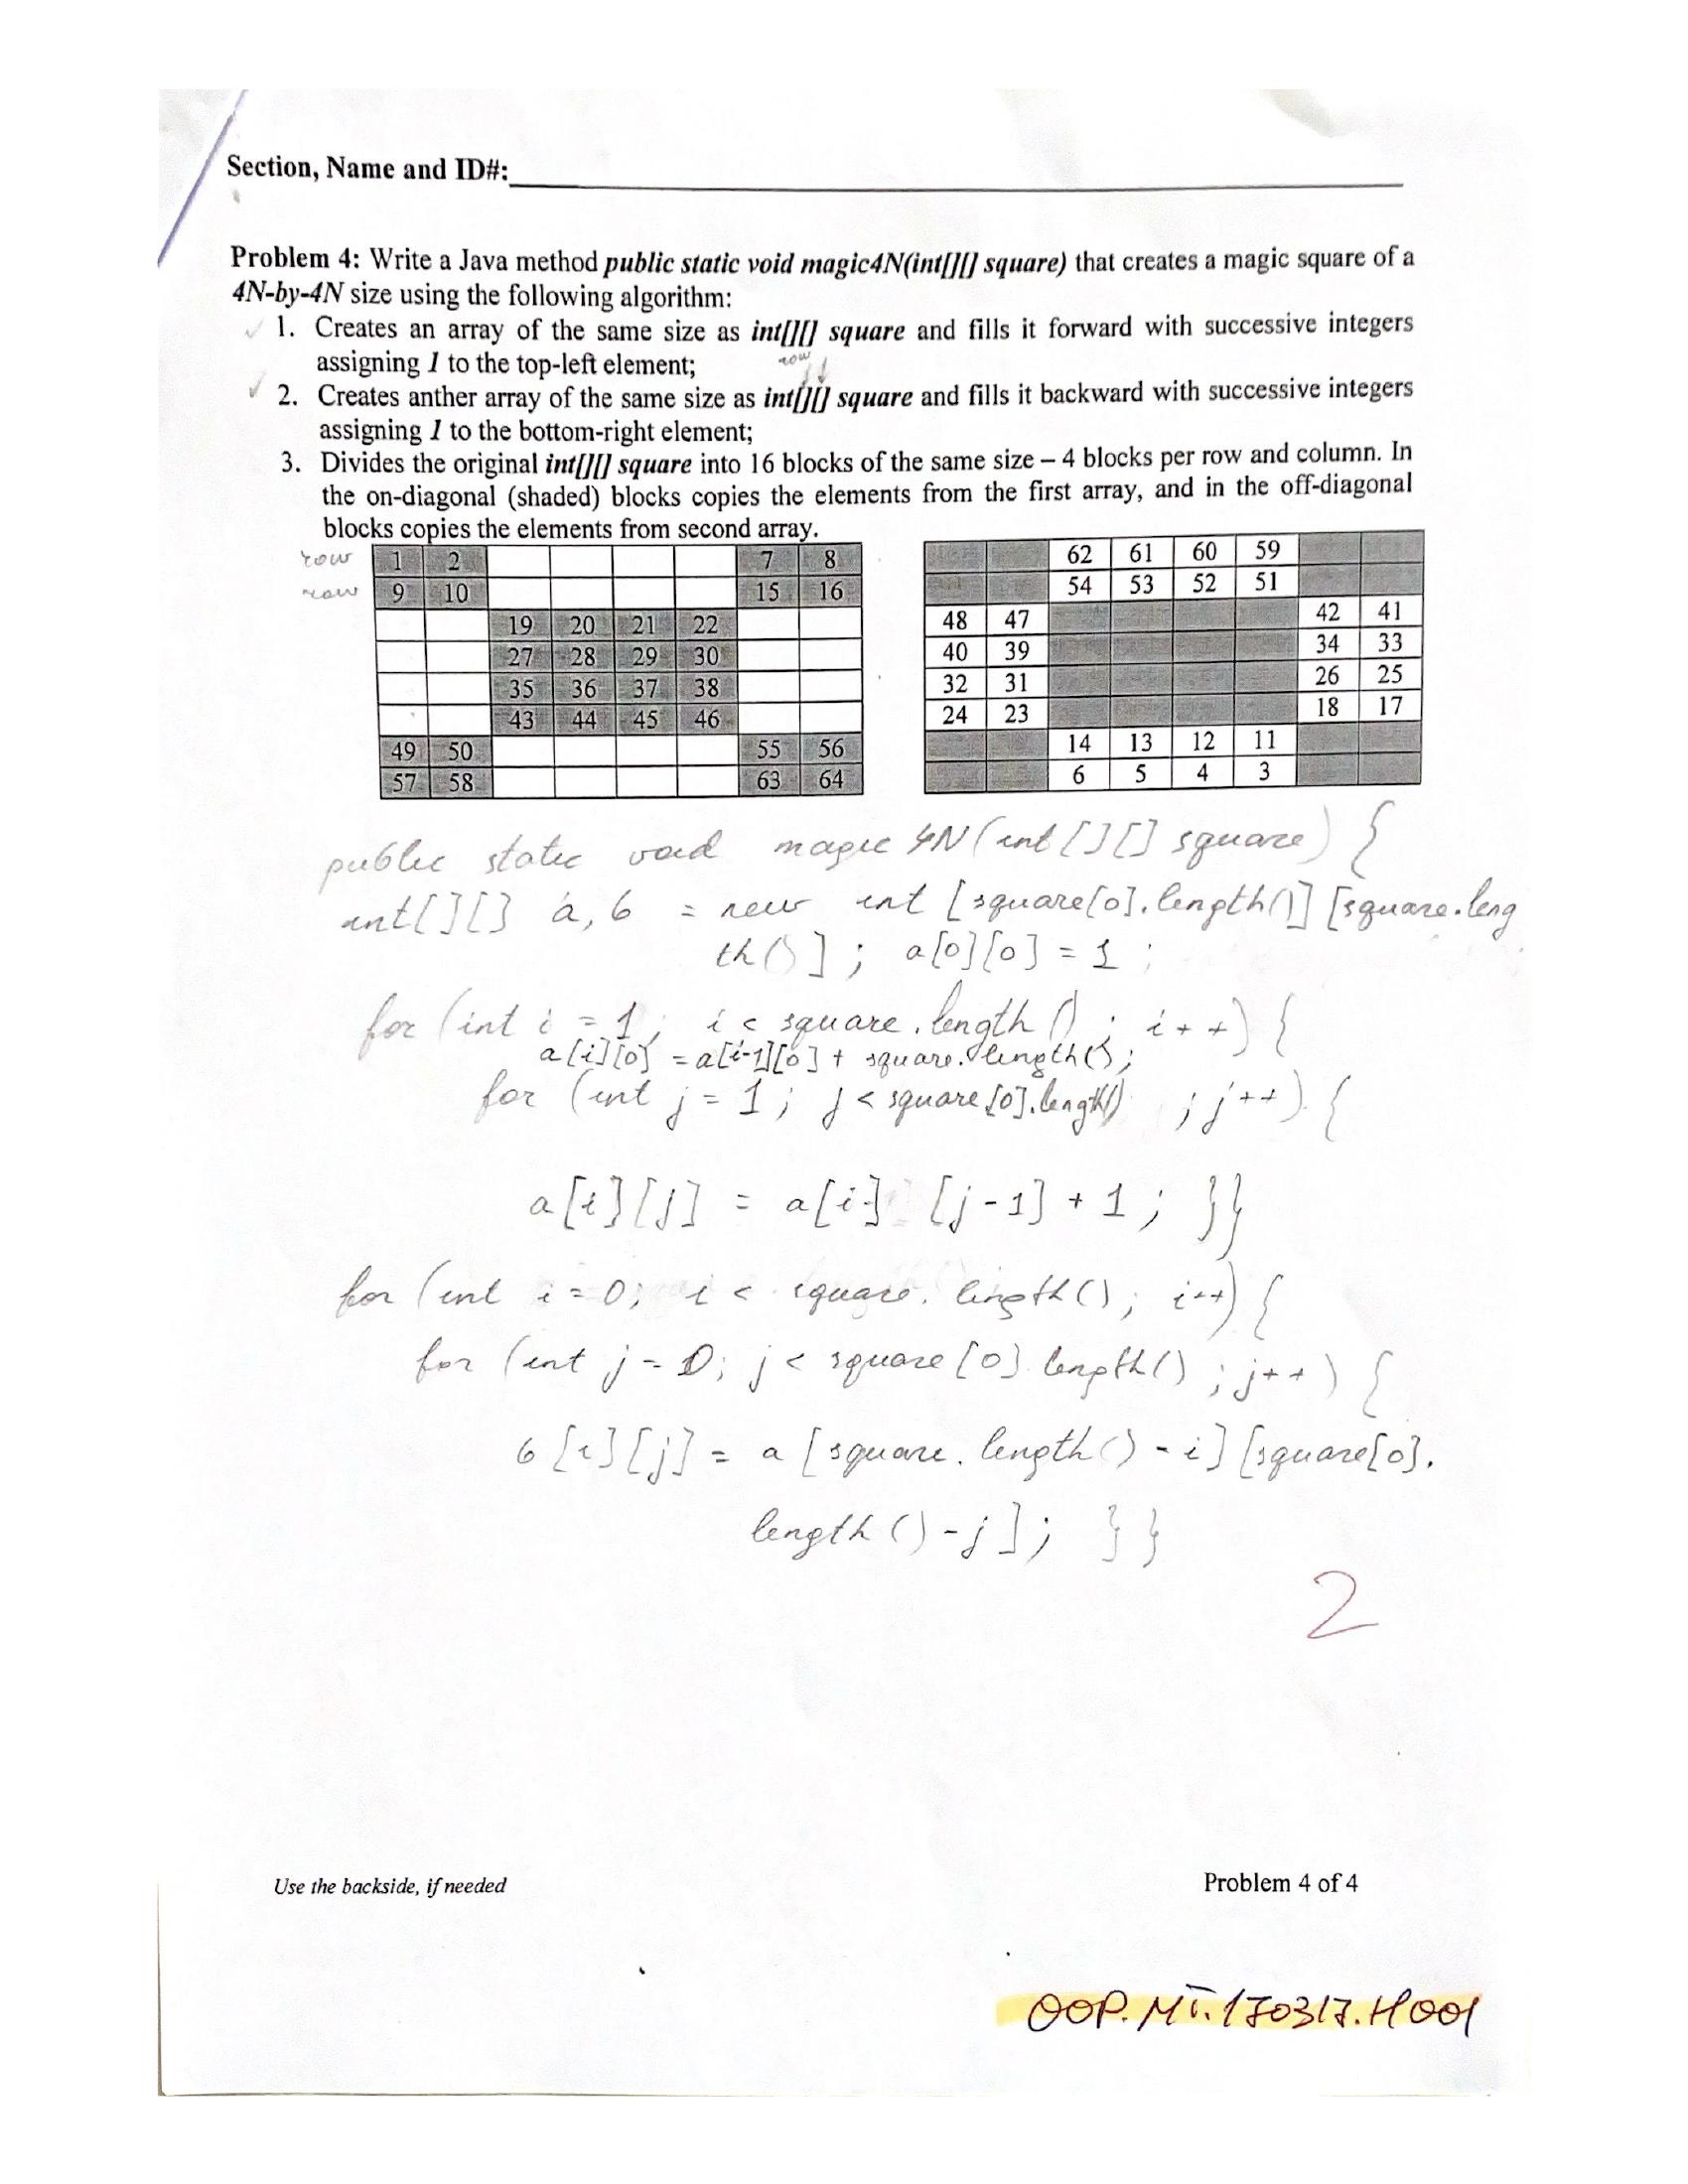 Section, Name and ID#:
Problem 4: Write a Java method public static void magic4N(int[][] square) that creates a magic square of a
4N-by-4N size using the following algorithm:
1. Creates an array of the same size as int[][] square and fills it forward with successive integers
assigning 1 to the top-left element;
row
2. Creates anther array of the same size as int[][] square and fills it backward with successive integers
assigning 1 to the bottom-right element;
3. Divides the original int[][] square into 16 blocks of the same size – 4 blocks per row and column. In
the on-diagonal (shaded) blocks copies the elements from the first array, and in the off-diagonal
blocks copies the elements from second array.
row 1 2 7 8
row 9 10 15 16
19 20 21 22
27 28 29 30
35 36 37 38
43 44 45 46
49 50 55 56
57 58 63 64
62 61 60 59
54 53 52 51
48 47 42 41
40 39 34 33
32 31 26 25
24 23 18 17
14 13 12 11
6 5 4 3
public static void magic 4N (int [][] square) {
int[][] a, b = new int [square[0].length()] [square.leng
th()]; a[0][0] = 1;
for (int i = 1; i < square.length(); i++) {
a[i][0] = a[i-1][0] + square.length();
for (int j = 1; j < square[0].length() ; j++) {
a[i][j] = a[i] [j-1] + 1; }}
for (int i = 0; i < square.length(); i++) {
for (int j = 0; j < square[0].length(); j++) {
b[i][j] = a [square.length() - i] [square[0].
length() - j]; }}
2
Use the backside, if needed
Problem 4 of 4
OOP.MT.170317.H001